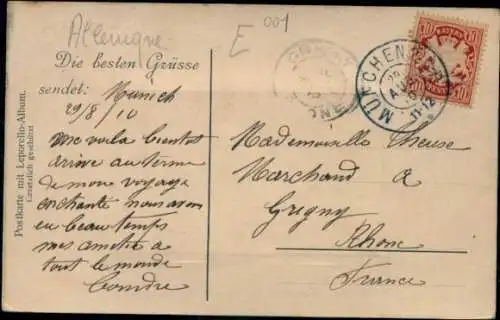 Allemagne
E
001
Die besten Grüsse
sendet: Munich
29/8/10
me voila bientot
arrive au terme
de mon voyage
enchanté nous avons
eu beau temps
mes amitié a
tout le monde
Postkarte mit Leporello-Album.
Gesetzlich geschützt
GRIGNY
RHONE
MÜNCHEN
AUG
11-12
BAYERN
10
10
Mademoiselle
Marchand a
Grigny
Rhone
France